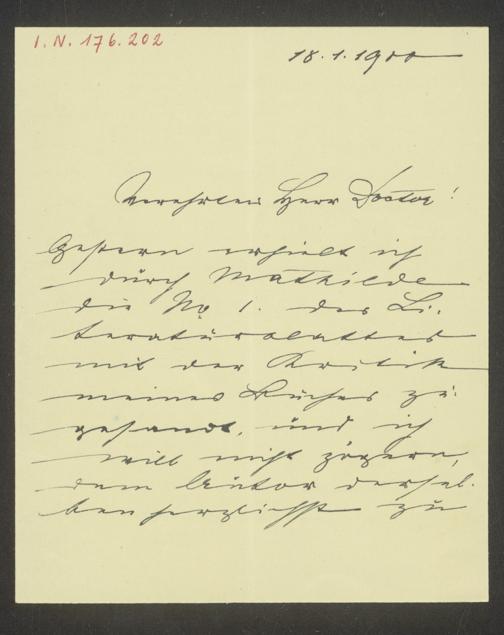 I. N. 176.202
18.1.1900
Verehrter Herr Doctor!
Gestern erhielt ich
durch Mathilde
die No 1. des Li-
teraturblattes
mit der Kritik
meines Buches zu-
gesandt, und ich
will nicht zögern,
dem Autor dersel-
ben herzlichst zu